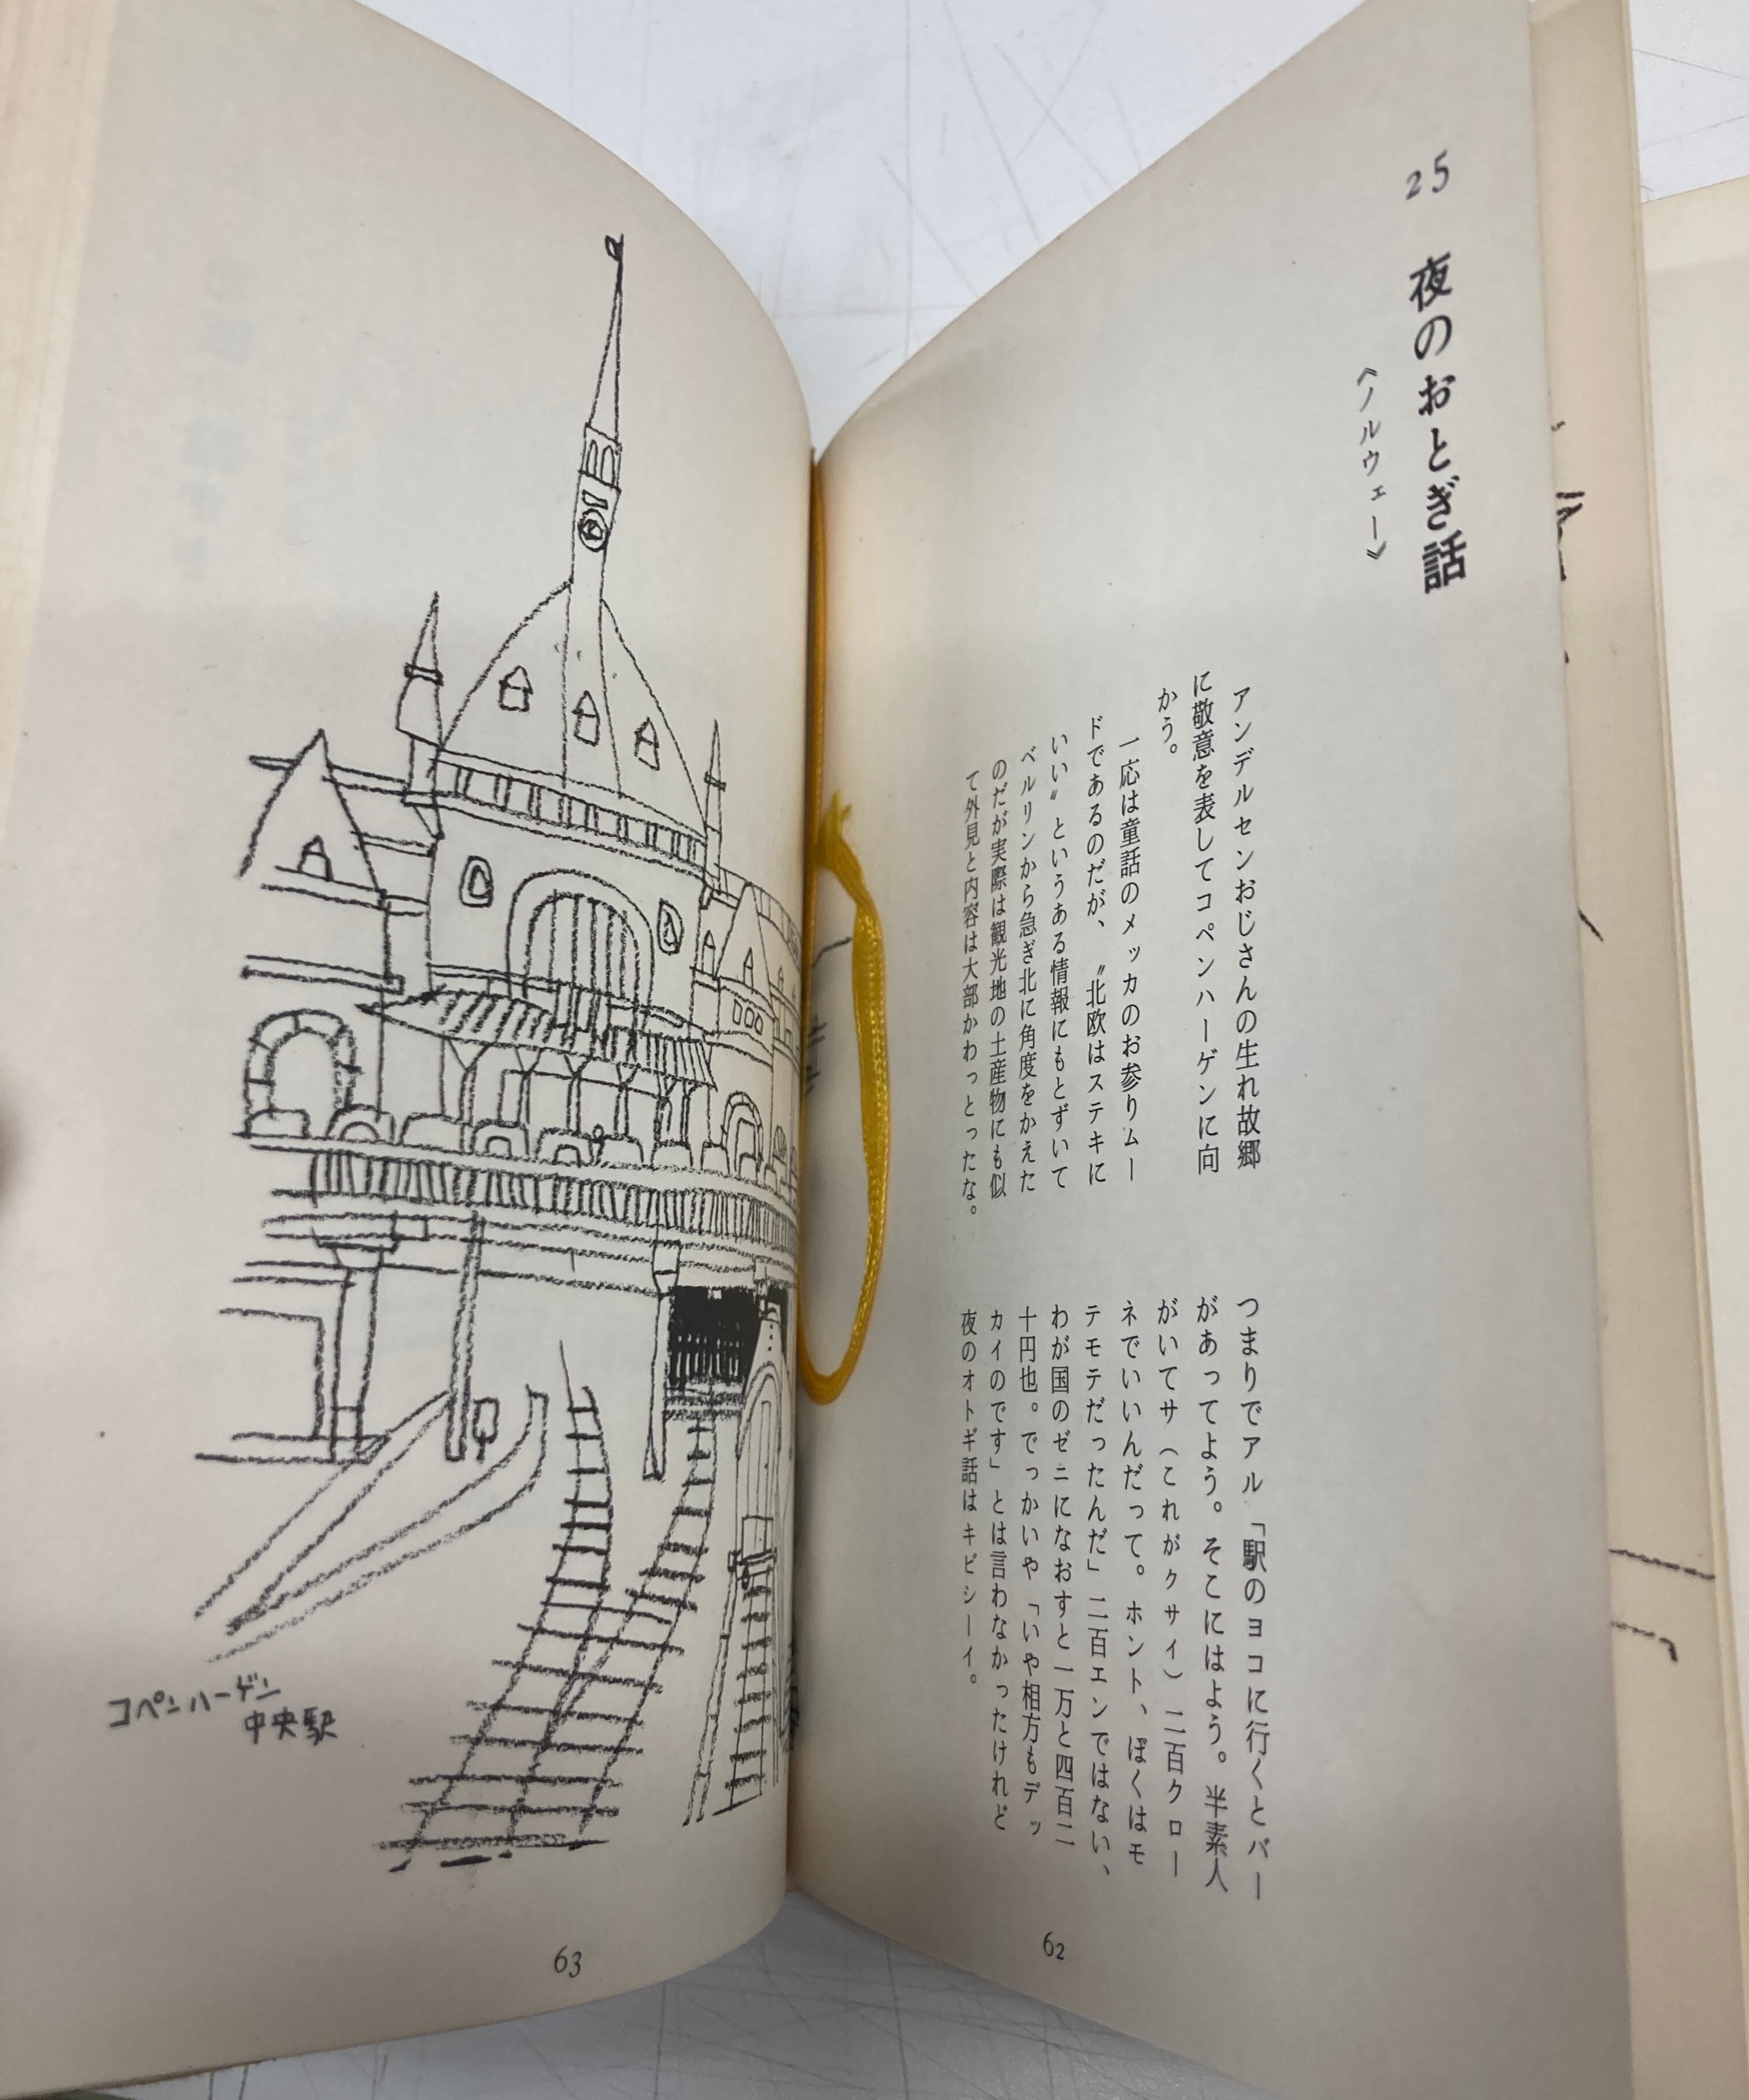 25 夜のおとぎ話
《ノルウェー》
アンデルセンおじさんの生れ故郷
に敬意を表してコペンハーゲンに向
かう。
一応は童話のメッカのお参りムー
ドであるのだが、〝北欧はステキに
いい〟というある情報にもとずいて
ベルリンから急ぎ北に角度をかえた
のだが実際は観光地の土産物にも似
て外見と内容は大部かわっとったな。
つまりでアル「駅のヨコに行くとバー
があってよう。そこにはよう。半素人
がいてサ（これがクサイ）二百クロー
ネでいいんだって。ホント、ぼくはモ
テモテだったんだ」二百エンではない、
わが国のゼニになおすと一万と四百二
十円也。でっかいや「いや相方もデッ
カイのです」とは言わなかったけれど
夜のオトギ話はキビシーイ。
62
コペンハーゲン
中央駅
63